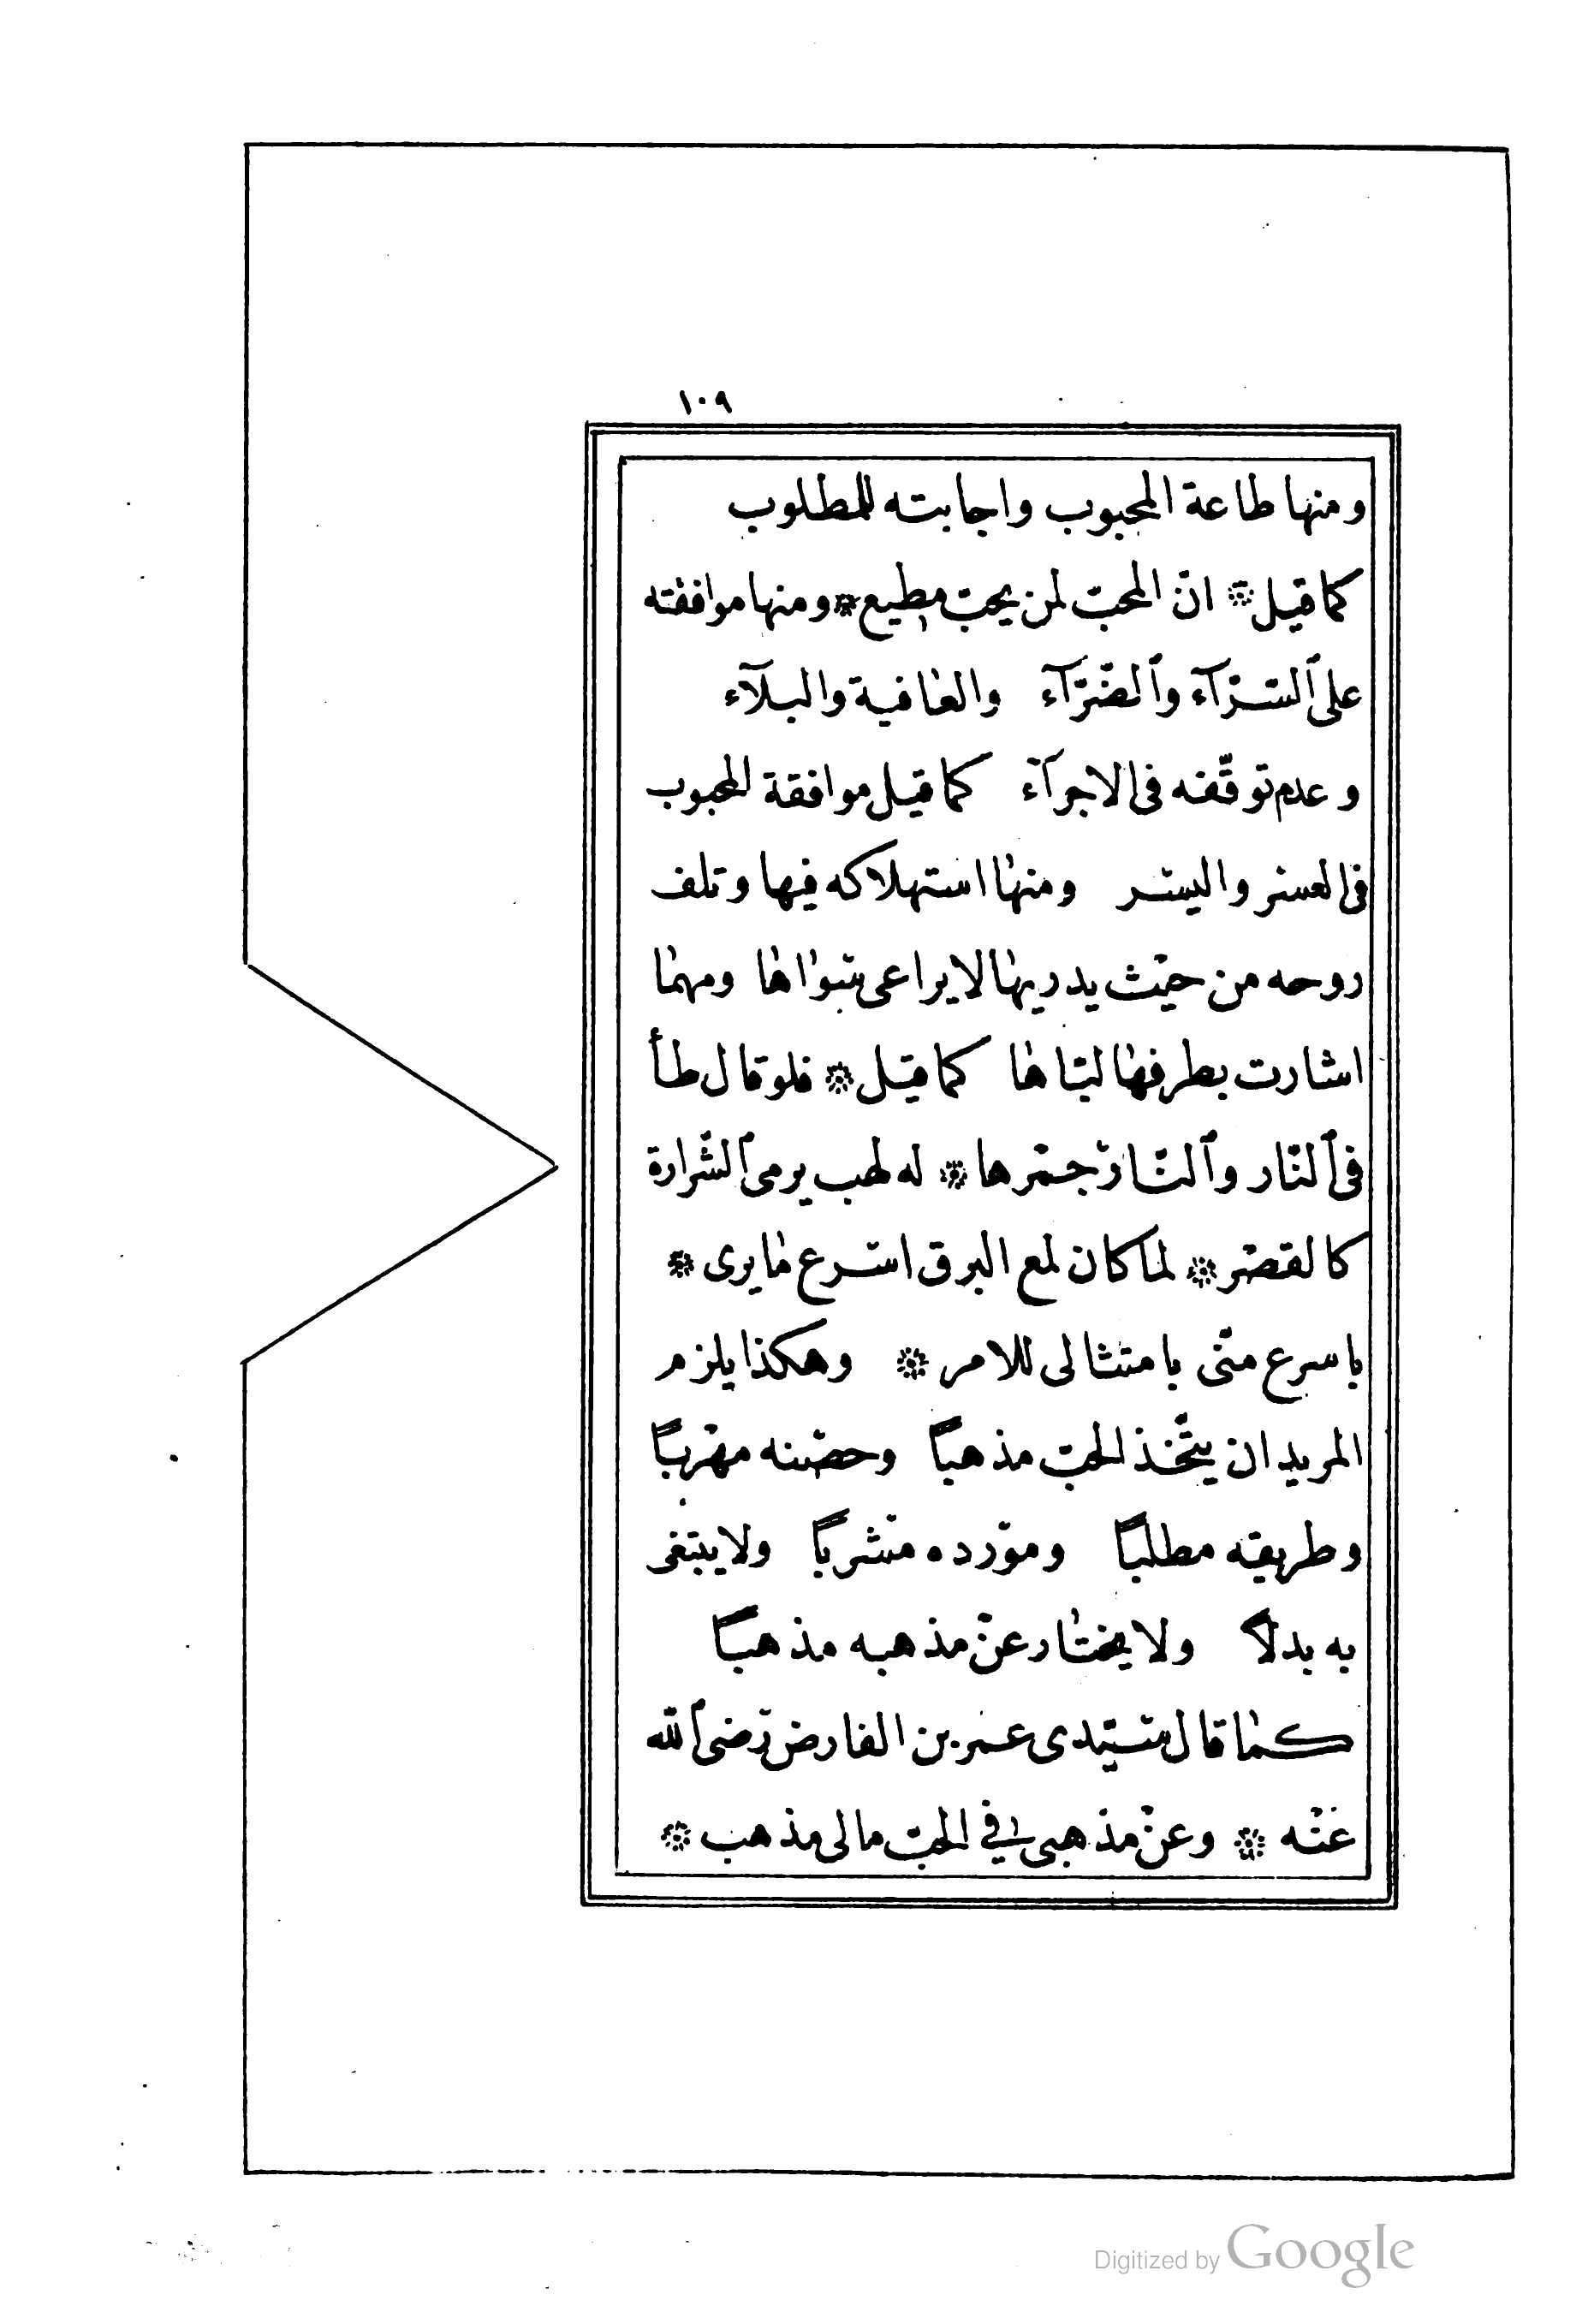 ١٠٩
ومنها طاعة المحبوب واجابته للمطلوب
كما قيل * انّ المحبّ لمن يحبّ مطيع * ومنها موافقته
على ٱلسّرّآء وٱلضّرّآء والعافية والبلآء
وعدم توقّفه فى الاجرآء كما قيل موافقة المحبوب
فى العسر واليسر ومنها استهلاكه فيها وتلف
روحه من حيث يدريها لا يراعى سواها ومهما
اشارت بطرفها لبّاها كما قيل * فلو قال طأ
فى ٱلنّار وٱلنّار جمرها * له لهب يرمى ٱلشّرارة
كالقصر * لما كان لمع البرق اسرع ما يرى *
باسرع منّى بامتثالى للامر * وهكذا يلزم
المريد ان يتّخذ الحبّ مذهباً وحصنه مهرباً
وطريقه مطلباً ومورده مشرباً ولا يبتغى
به بدلاً ولا يختار عن مذهبه مذهباً
كما قال سيّدى عمر بن الفارض رضى ٱللّه
عنه * وعن مذهبى في الحبّ مالى مذهب *
Digitized by Google